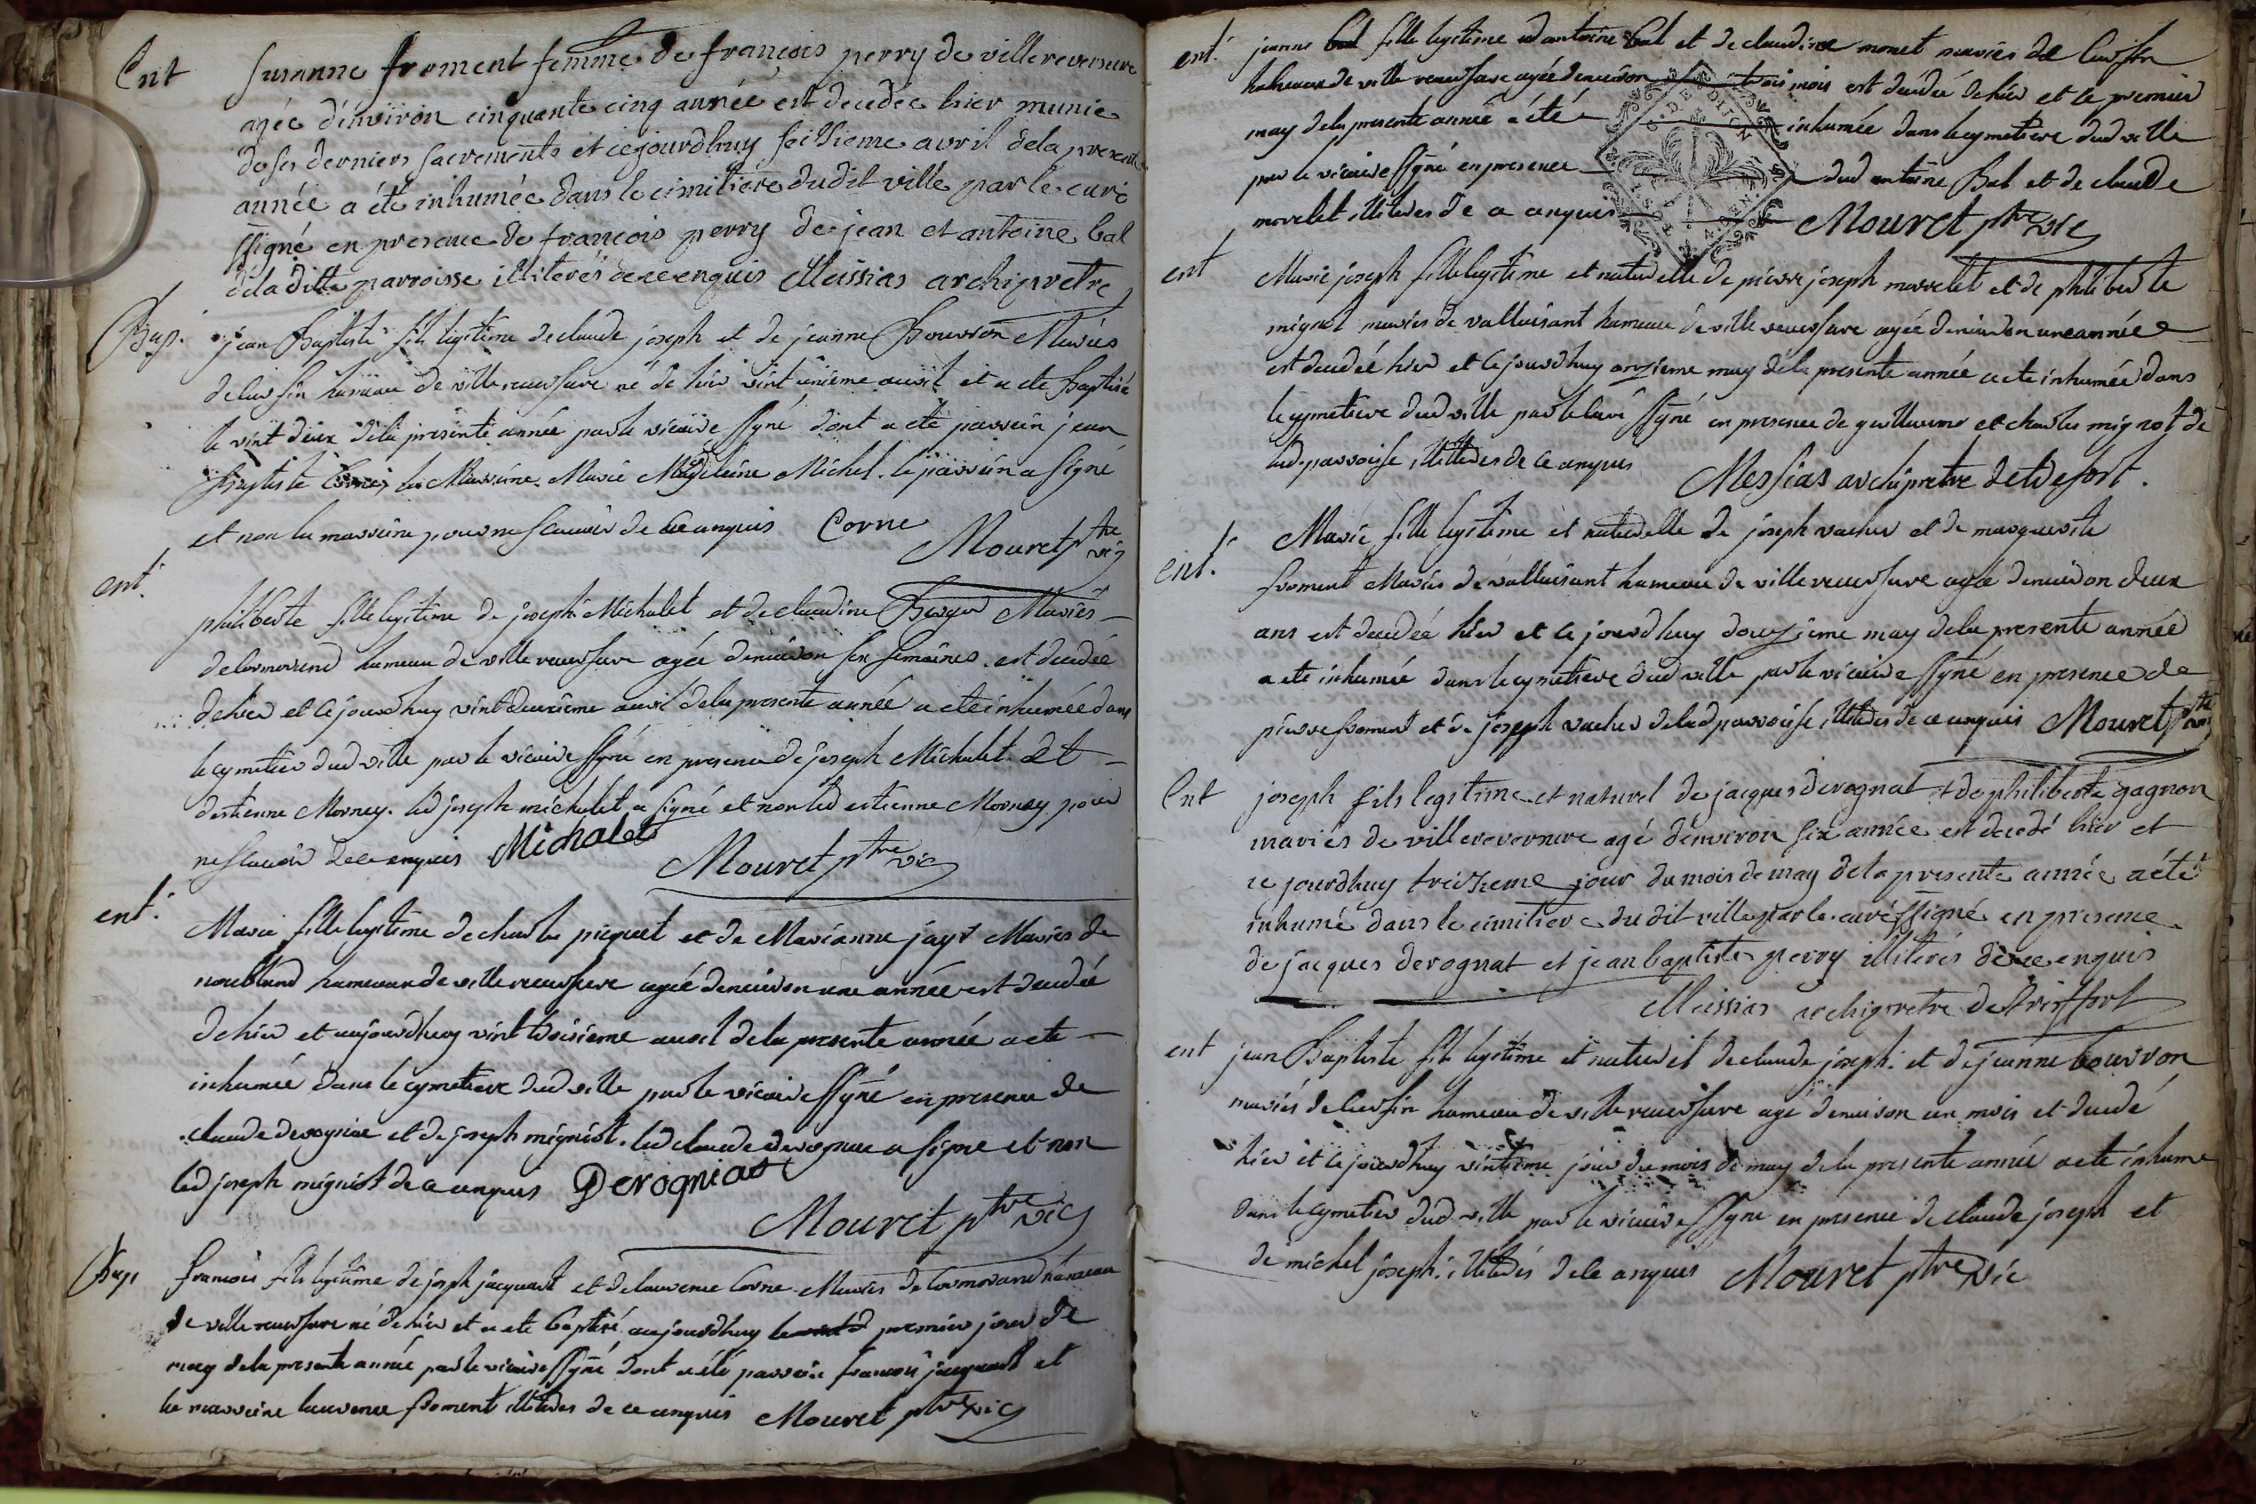 Ent
Susanne froment femme de françois perry de villereversure
agée d'environ cinquante cinq année est decedée hier munie
de ses derniers sacrements et cejourdhuy seitsieme avril dela presente
année a été inhumée dans le cimitiere dudit ville par le curé
ssigné en presence de françois perry de jean et antoine bal
dela ditte parroisse illiterés de ce enquis Meissias archipretre
Bap.
jean Baptiste fils legitime de claude joseph et de jeanne Bourron Mariés
de hameau de ville reversure né de hier vint unieme avril et a ete Baptisé
le vint deux dela presente année par le vicaire ssigné dont a ete parrein jean
Baptiste Corne la Marreine Marie Magdeleine Michel. le parrein a signé
et non la marreine pour ne scavoir de ce anquis Corne
Mouret ptre vic
ent.
philiberte fille legitime de joseph Michalet et de claudine Berger Mariés
de cormorand hameau de ville reversure agée denviron six semaines est decedée
dehier et cejourdhuy vint deuxieme avril dela presente année a ete inhumée dans
le cymetiere dud ville par le vicaire ssigné en presence de joseph Michalet et
destienne Morney. led joseph michalet a signé et non led estienne Morney pour
ne scavoir de ce enquis Michalet
Mouret ptre vic
ent.
Marie fille legitime de charles picquet et de Marianne jayr Mariés de
noubland hameau de ville reversure agée denviron une année est decedée
dehier et aujourdhuy vint troisieme avril dela presente année a ete
inhumée dans le cymetiere dud ville par le vicaire ssigné en presence de
claude derognat et de joseph migniot. led claude derognat a signe et non
led joseph migniot de ce enquis Derogniat
Mouret ptre vic
Bap
francois fils legitime de joseph jacquand et de laurence Corne Mariés de Cormorand hameau
de ville reversure né de hier et a ete baptisé aujourdhuy premier jour de
may dela presente année par le vicaire ssigné dont a été parrein francois jacquand et
la marreine laurence froment illiteres de ce anquis Mouret ptre vic
ent.
jeanne bal fille legitime dantoine bal et de claudine monet mariés de
hameau de ville reversure agée denviron trois mois est decedée dehier et ce premier
may dela presente année a été inhumée dans le cymetiere dud ville
par le vicaire ssigné en presence dud antoine Bal et de claude
morelet illiteres de ce anquis Mouret ptre vic
ent
Marie joseph fille legitime et naturelle de pierre joseph morrelet et de philiberte
mignot mariés de valluisant hameau de ville reversure agée denviron une année
est decedée hier et cejourdhuy onzieme may dela presente année a ete inhumée dans
le cymetiere dud ville par le curé ssigné en presence de guillaume et charles mignot de
lad. parroisse illiteres de ce anquis Messias archipretre de treffort.
ent.
Marie fille legitime et naturelle de joseph vacher et de marguerite
froment Mariés de valluisant hameau de ville reversure agée denviron deux
ans est decedée hier et cejourdhuy douzieme may dela presente année
a ete inhumée dans le cymetiere dud ville par le vicaire ssigné en presence de
pierre froment et de joseph vacher de lad parroisse illiteres de ce anquis Mouret ptre vic
Ent
joseph fils legitime et naturel de jacques derognat et de philiberte gagnon
mariés de villereversure agé denviron six année est decedé hier et
cejourdhuy treizieme jour du mois de may dela presente année a été
inhumé dans le cimitiere du dit ville par le curé ssigné en presence
de jacques derognat et jean baptiste perry illiterés de ce enquis
Meissias archipretre de treffort
ent
jean Baptiste fils legitime et naturel de claude joseph et de jeanne bourron
mariés de hameau de ville reversure agé denviron un mois et decedé
hier et cejourdhuy vintieme jour du mois de may dela presente année a ete inhumé
dans le cymetiere dud ville par le vicaire ssigné en presence de claude joseph et
de michel joseph illiterés de ce anquis Mouret ptre vic